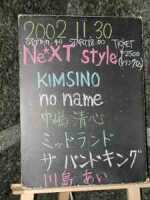 2002 11.30
TICKET
¥2500
NeXT style
KIMSINO
no name
中嶋 清心
ミッドランド
ザ バンド・キング
川島 あい